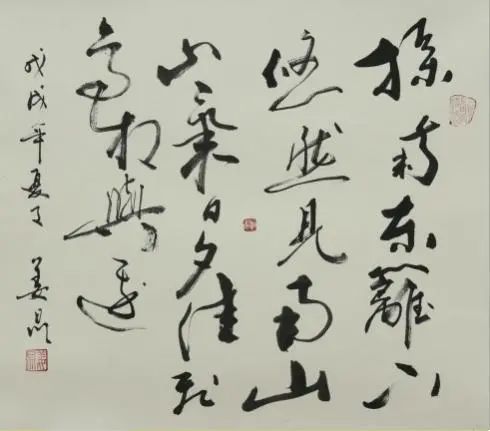 採菊东籬下
悠然見南山
山氣日夕佳飛
鳥相與還
戊戌年夏月 姜